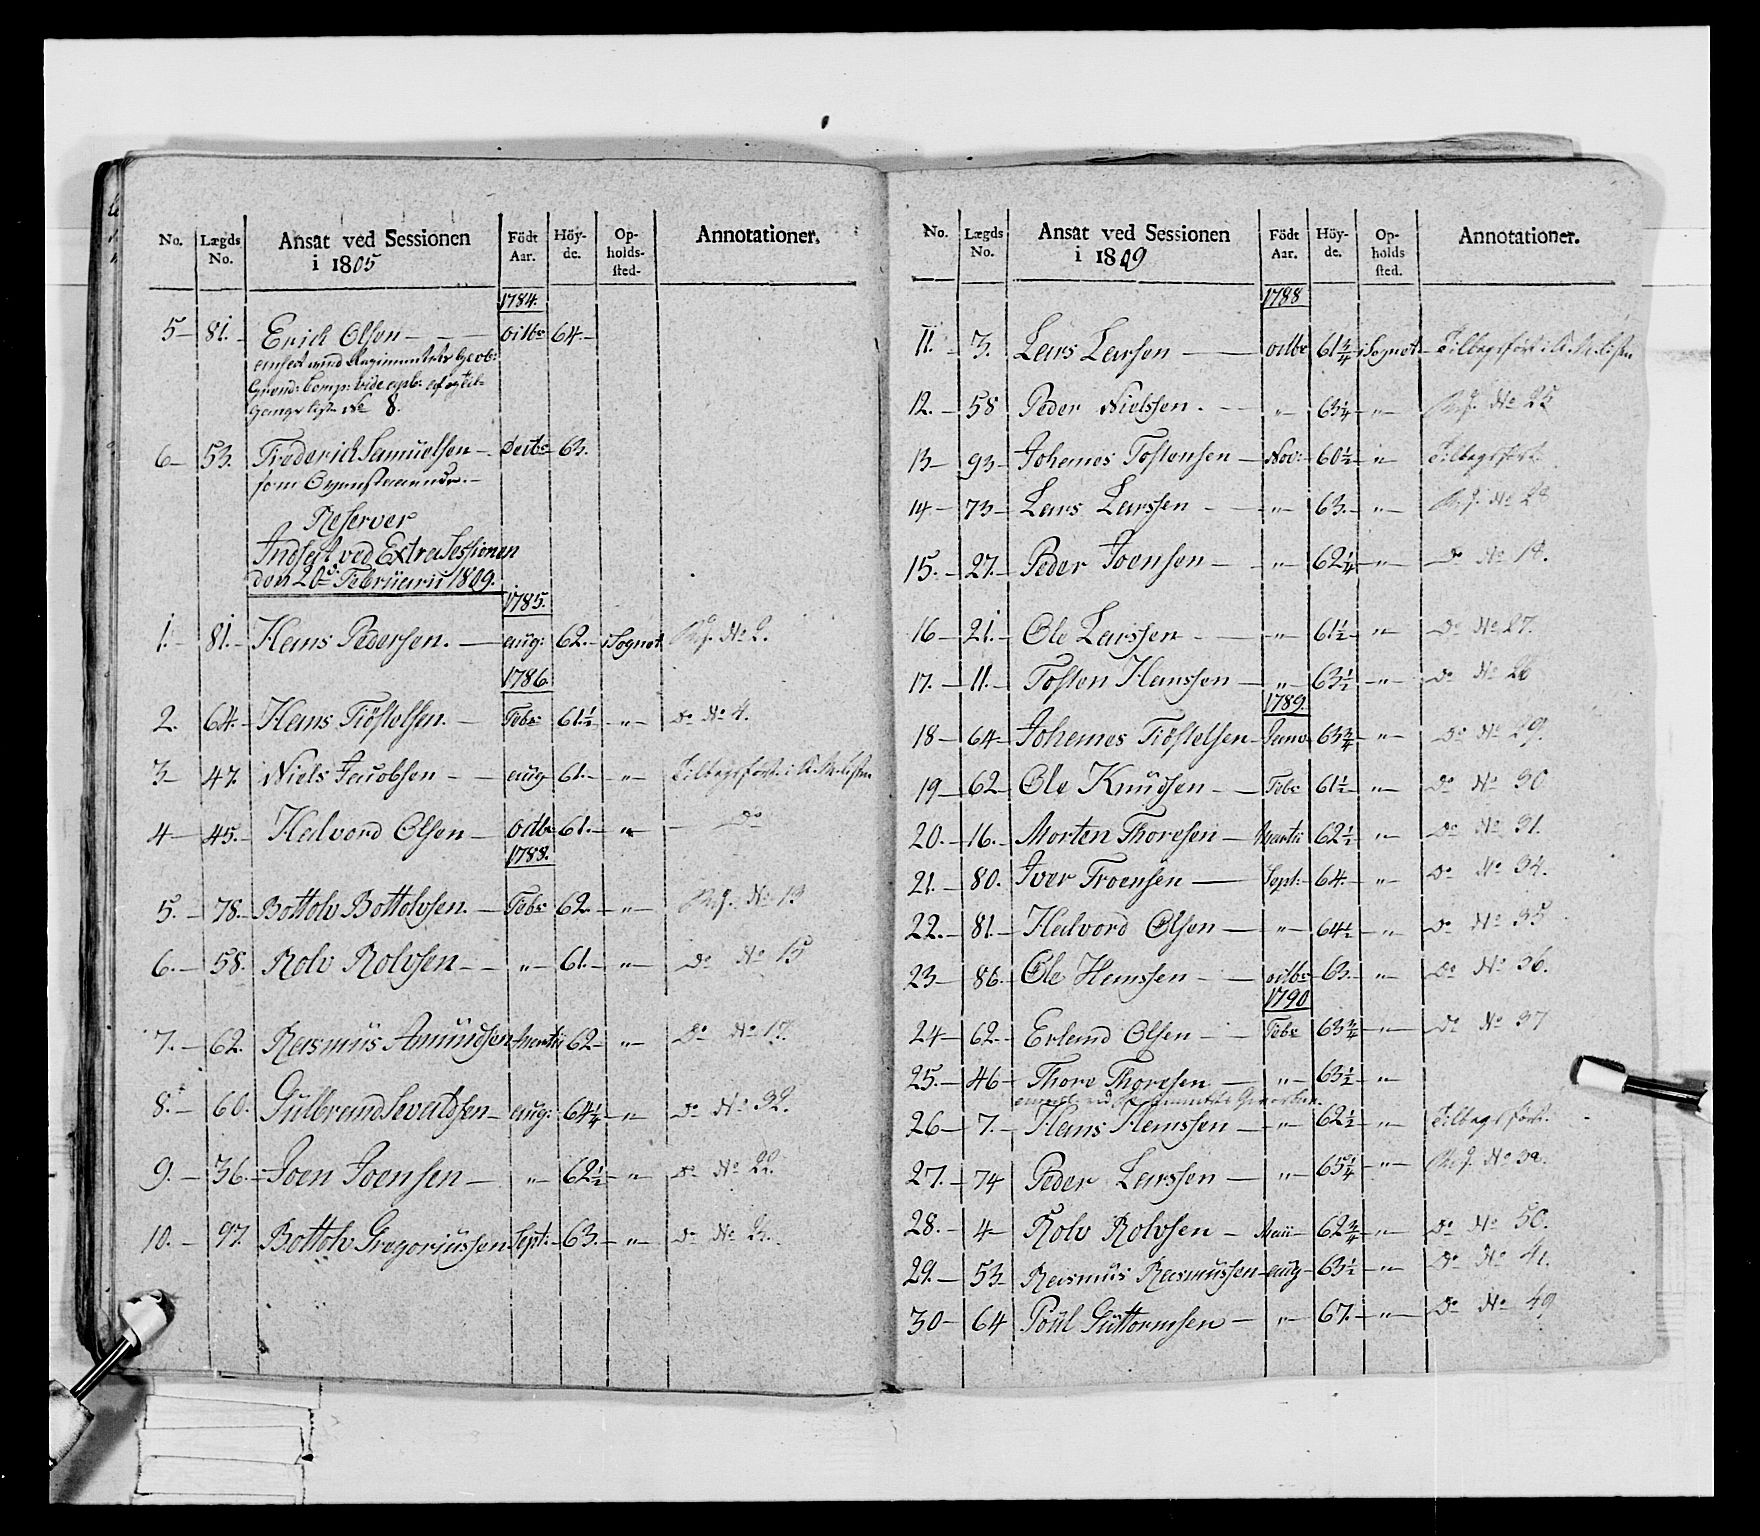 No. Lægds No. Ansat ved Sessionen i 1805 Födt Aar. Höy-de. Op-holds-sted. Annotationer.
1784.
5 81. Erich Olsen octbr 64
ansat ved Regimentets Gevb:
Grend: Comp: vide opb: af og til-
gangs liste No 8.
6 53. Frederich Samuelsen Decbr 63.
som Ovenstaaende.
Reserver
Indsat ved Extra Sessionen
den 20de Februarii 1809.
1785.
1. 81. Hans Pedersen. aug: 62. i Sognet No 2.
1786.
2. 64. Hans Tiöstelsen. Febr 61½ " Do No 4.
3 47. Niels Jacobsen aug 61. " Tilbageført i
4 45. Halvord Olsen Octbr 61. " Do
1788.
5. 78. Bottolv Bottolvsen. Febr 62. " No 13
6. 58. Rolv Rolvsen " 61. " Do No 15
7. 62. Rasmus Amundsen Martii 62 " Do No 17.
8. 60. Gulbrand Sevaldsen aug: 64¼ " Do No 32.
9. 36. Joen Joensen " 62½ " Do No 22.
10. 97. Bottolv Gregoriussen Sept: 63. " Do No 23.
No. Lægds No. Ansat ved Sessionen i 1809 Födt Aar. Höy-de. Op-holds sted. Annotationer.
1788
11. 3. Lars Larsen octbr 61¾ i Sognet Tilbageført i
12. 58 Peder Nielssen. " 63¼ " No 25
13 93 Johannes Tostensen Nov: 60½ " Tilbageført
14 73 Lars Larssen " 63. " No 28
15. 27. Peder Joensen " 62¼ " Do No 14.
16 21. Ole Larssen " 61½ " Do No 27.
17. 11. Tosten Hanssen " 63½ " Do No 26
1789.
18 64 Johannes Tiöstelsen Janv 63¾ " Do No 29.
19 62 Ole Knudsen Febr 61½ " Do No 30
20. 16. Morten Thoresen Martii 62½ " Do No 31.
21. 80. Iver Troensen Sept: 64. " Do No 34.
22. 81. Halvord Olsen " 64½ " Do No 35
23 86. Ole Hanssen octbr 63. " Do No 36.
1790
24 62. Erland Olsen Febr 63¾ " Do No 37
25. 46 Thore Thoresen " 63½ "
ansat ved Regimentets
26 7. Hans Hanssen " 62½ " Tilbageført.
27. 74 Peder Larssen " 65¼ " No 39.
28. 4 Rolv Rolvsen Maii 62¾ " Do No 50.
29. 53 Rasmus Rasmussen aug 63½ " Do No 41.
30 64 Poul Guttormsen " 67. " Do No 49